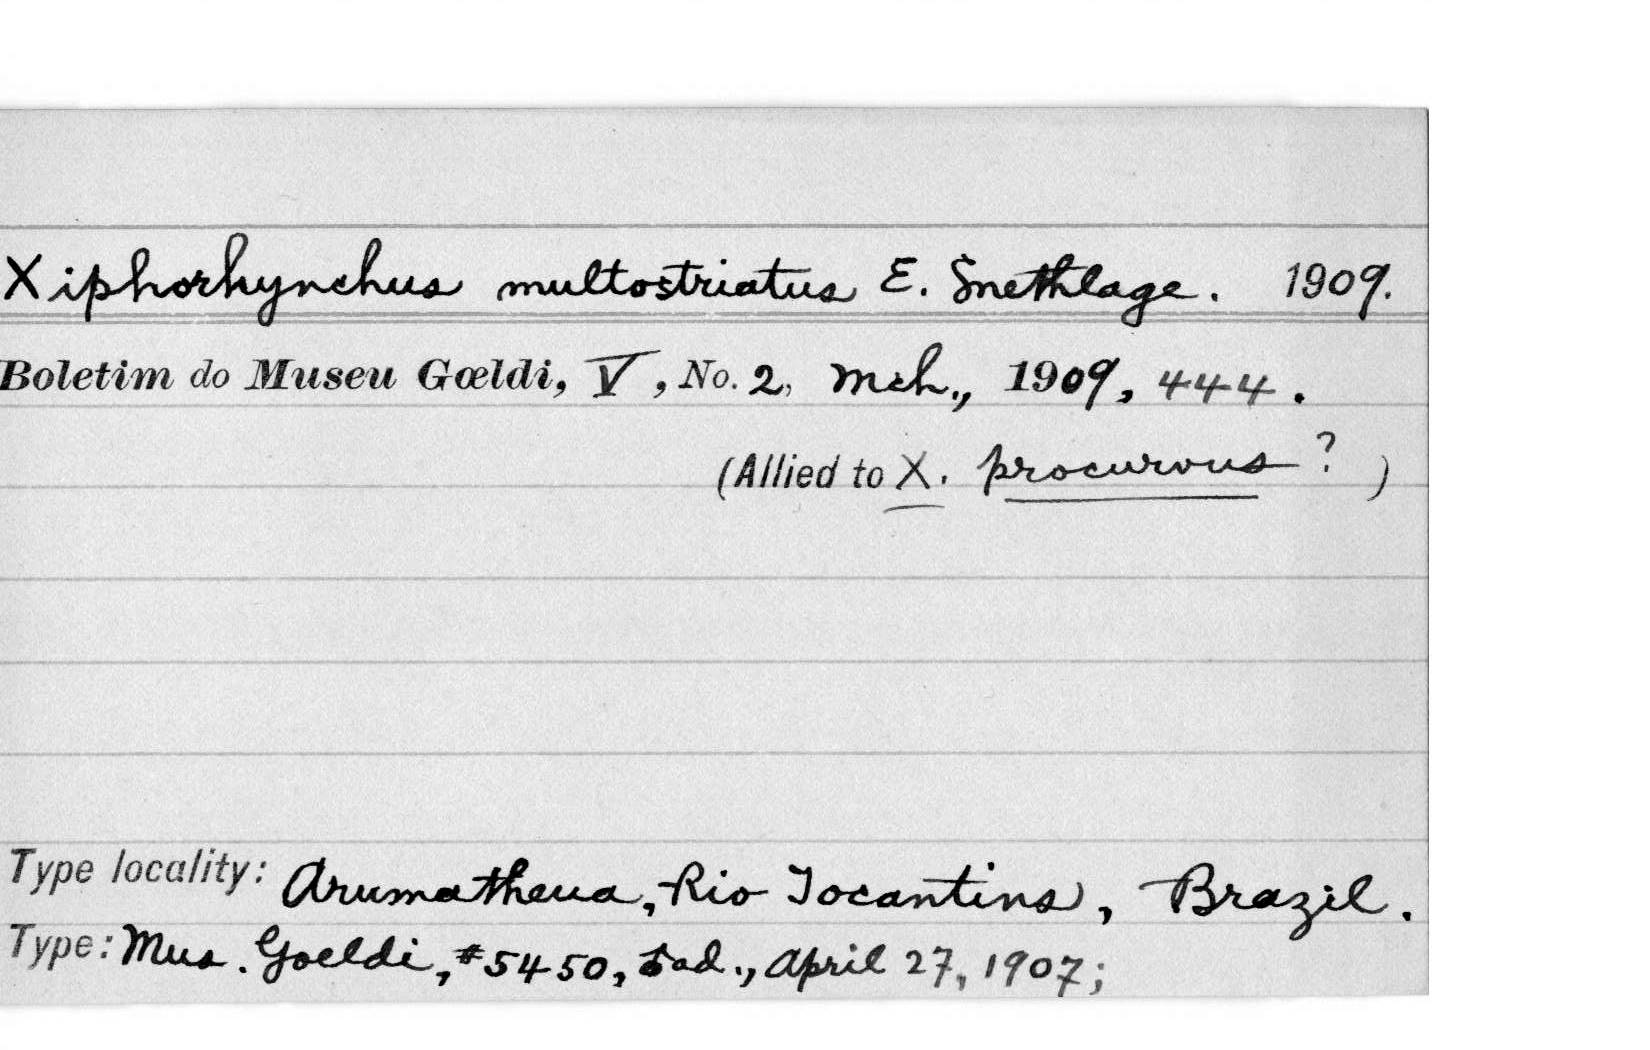 Xiphorhynchus multostriatus E. Snethlage. 1909.
Boletim do Museu Gœldi, V, No. 2, Mch., 1909, 444.
(Allied to X. procurvus ? )
Type locality: Arumatheua, Rio Tocantins, Brazil.
Type: Mus. Goeldi, #5450, ad., April 27, 1907;